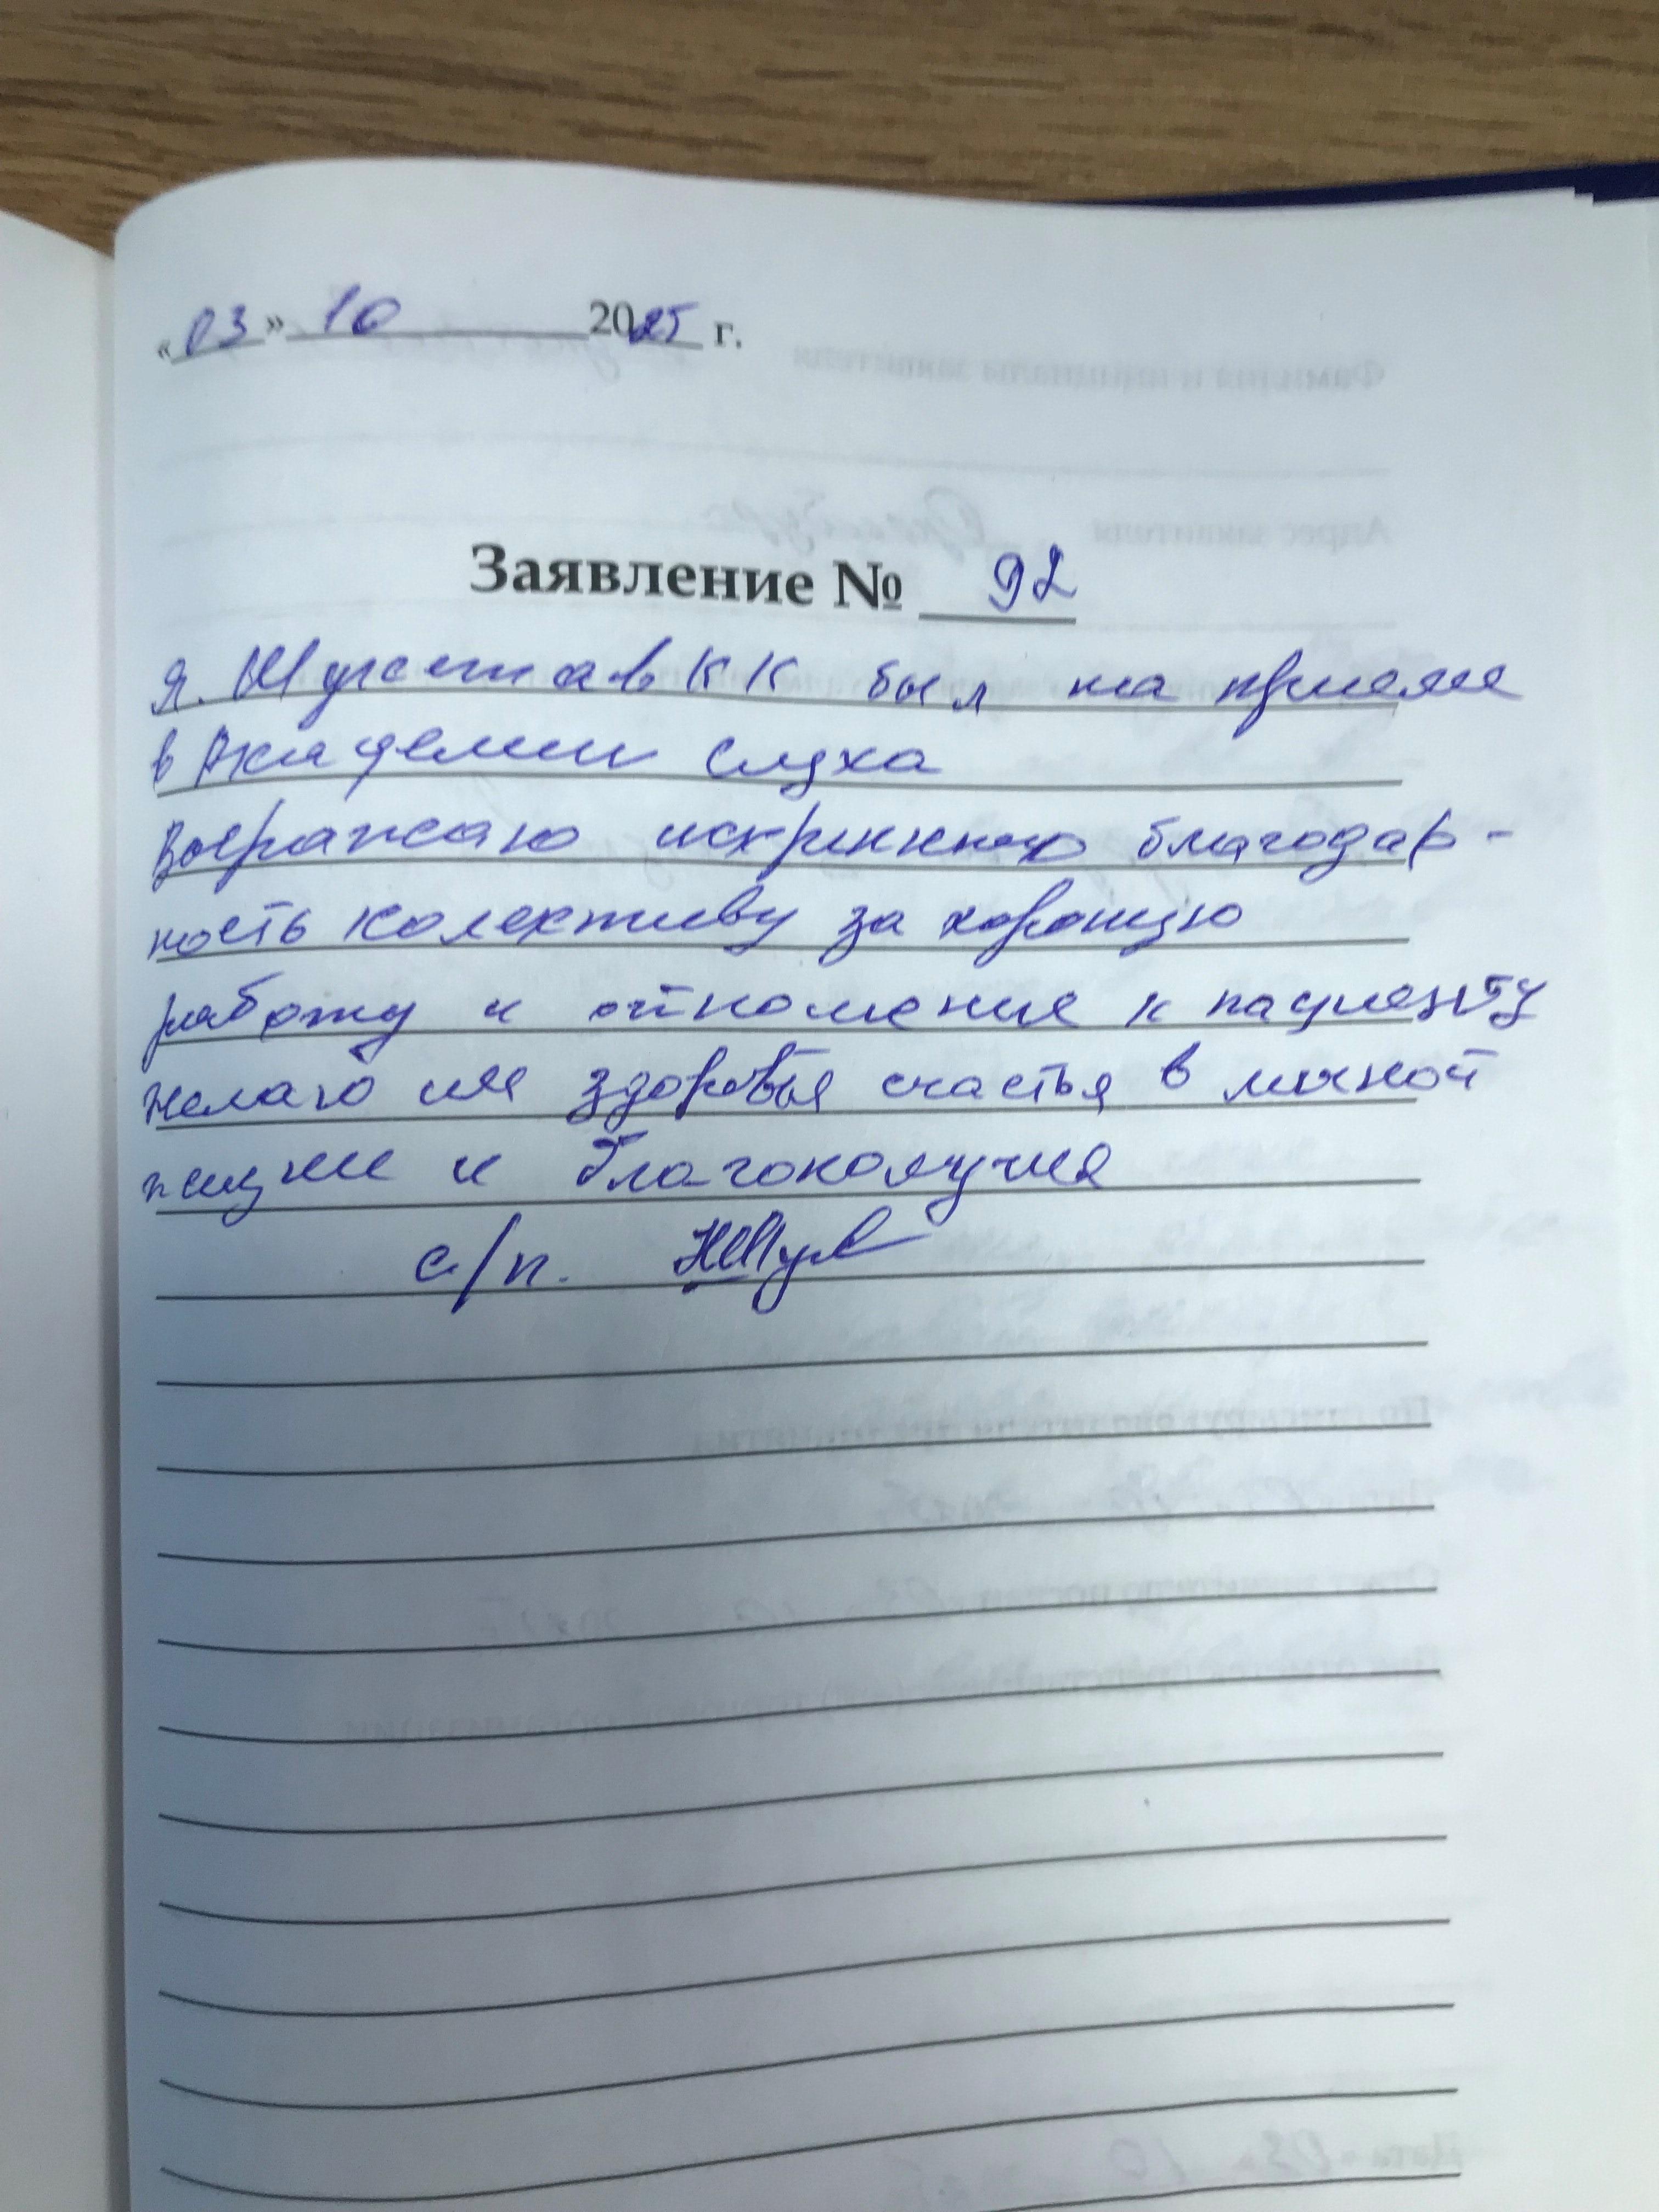 «03» 10 2025 г.
Заявление № 92
Я. К К был на приеме
в Академии слуха
Выражаю искреннюю благодар-
ность колективу за хорошую
работу и отношение к пациенту
желаю им здоровья счастья в личной
жизни и благополучия
с/п.